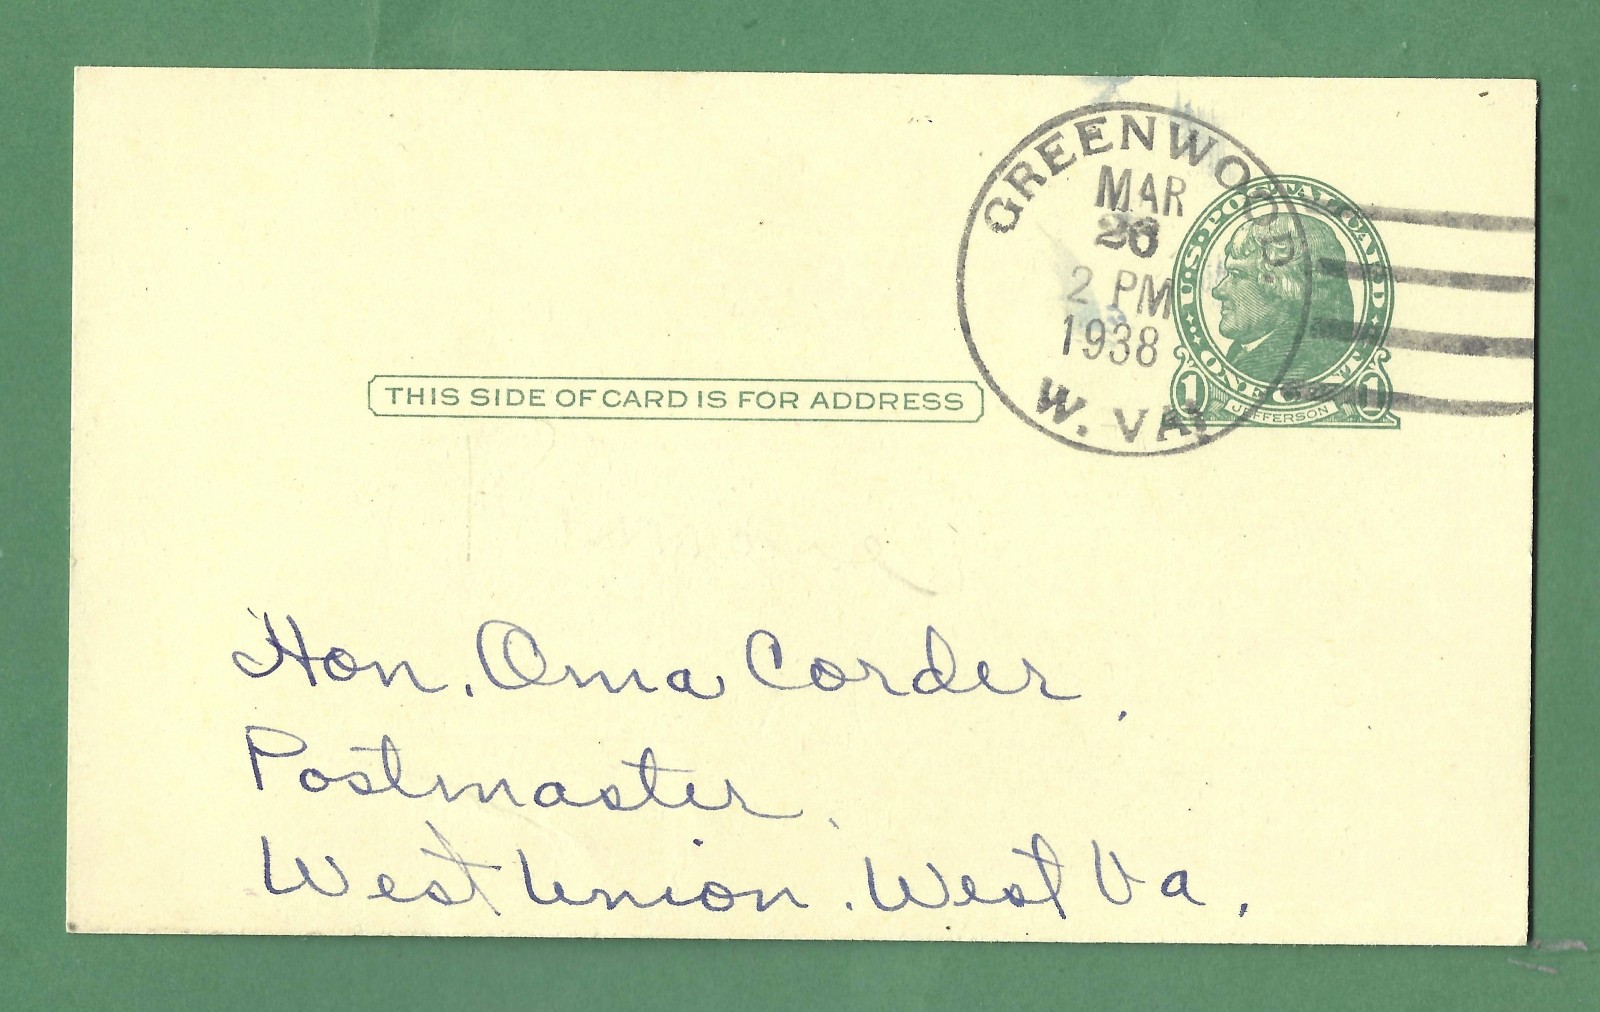 GREENWOOD.
MAR
26
2 PM
1938
W. VA.
U.S. POSTAL CARD
ONE CENT
1 1
JEFFERSON
THIS SIDE OF CARD IS FOR ADDRESS
Hon. Oma Corder,
Postmaster,
West Union. West Va.